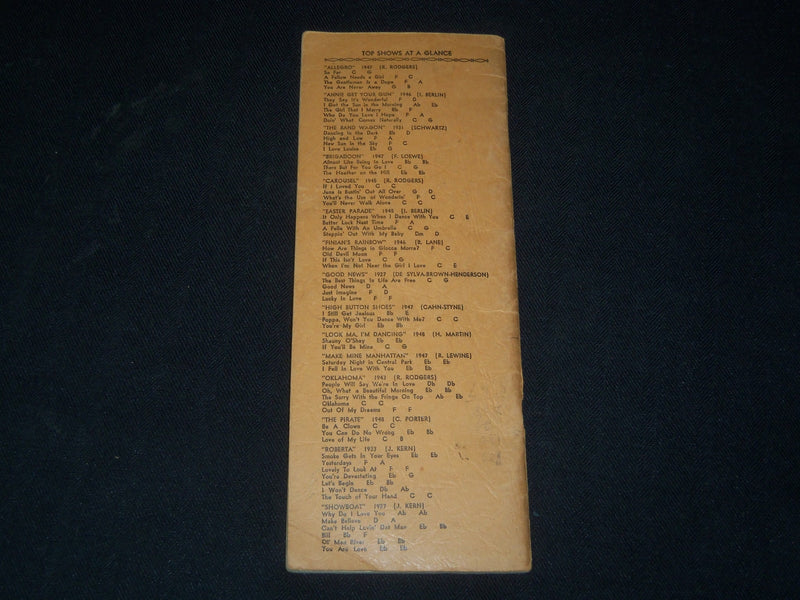 TOP SHOWS AT A GLANCE
"ALLEGRO" 1947 (R. RODGERS)
So Far C G
A Fellow Needs a Girl F C
The Gentleman Is a Dope F A
You Are Never Away G B
"ANNIE GET YOUR GUN" 1946 (I. BERLIN)
They Say It's Wonderful F D
I Got the Sun in the Morning Ab Eb
The Girl That I Marry Eb F
Who Do You Love I Hope F A
Doin' What Comes Naturally C G
"THE BAND WAGON" 1931 (SCHWARTZ)
Dancing in the Dark Eb D
High and Low F A
New Sun in the Sky F C
I Love Louisa Eb G
"BRIGADOON" 1947 (F. LOEWE)
Almost Like Being in Love Bb Bb
There But For You Go I C G
The Heather on the Hill Eb Bb
"CAROUSEL" 1945 (R. RODGERS)
If I Loved You C C
June is Bustin' Out All Over G D
What's the Use of Wonderin' F C
You'll Never Walk Alone C C
"EASTER PARADE" 1948 (I. BERLIN)
It Only Happens When I Dance With You C E
Better Luck Next Time F A
A Fella With An Umbrella C G
Steppin' Out With My Baby Dm D
"FINIAN'S RAINBOW" 1946 (B. LANE)
How Are Things in Glocca Morra? F C
Old Devil Moon F F
If This Isn't Love C G
When I'm Not Near the Girl I Love C E
"GOOD NEWS" 1927 (DE SYLVA-BROWN-HENDERSON)
The Best Things In Life Are Free C G
Good News D A
Just Imagine F D
Lucky In Love F F
"HIGH BUTTON SHOES" 1947 (CAHN-STYNE)
I Still Get Jealous Eb E
Poppa, Won't You Dance With Me? C C
You're My Girl Eb Bb
"LOOK MA, I'M DANCING" 1948 (H. MARTIN)
Shauny O'Shay Eb Eb
If You'll Be Mine C G
"MAKE MINE MANHATTAN" 1947 (R. LEWINE)
Saturday Night in Central Park Eb Eb
I Fell In Love With You Eb Eb
"OKLAHOMA" 1943 (R. RODGERS)
People Will Say We're In Love Db Db
Oh, What a Beautiful Morning Eb Eb
The Surry With the Fringe On Top Ab Eb
Oklahoma C C
Out Of My Dreams F F
"THE PIRATE" 1948 (C. PORTER)
Be A Clown C C
You Can Do No Wrong Eb Bb
Love of My Life C B
"ROBERTA" 1933 (J. KERN)
Smoke Gets In Your Eyes Eb Eb
Yesterdays F A
Lovely To Look At F F
You're Devastating Eb G
Let's Begin Eb Bb
I Won't Dance Db Ab
The Touch of Your Hand C C
"SHOWBOAT" 1927 (J. KERN)
Why Do I Love You Ab Ab
Make Believe D A
Can't Help Lovin' Dat Man Eb Eb
Bill Eb F
Ol' Man River Eb Eb
You Are Love Eb Eb